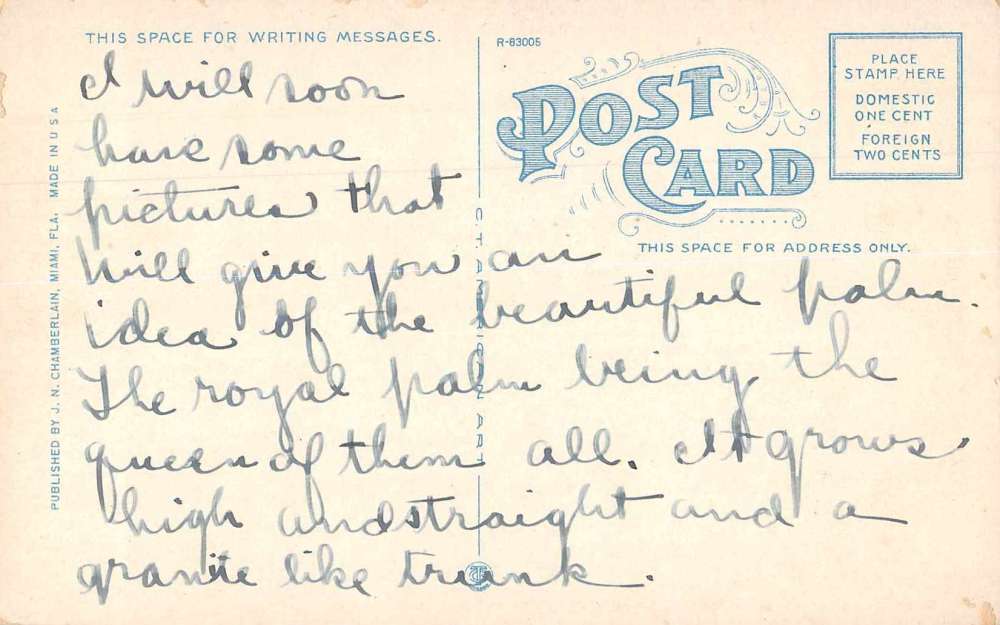 THIS SPACE FOR WRITING MESSAGES.
R-83005
POST
CARD
PLACE
STAMP HERE
DOMESTIC
ONE CENT
FOREIGN
TWO CENTS
THIS SPACE FOR ADDRESS ONLY.
I will soon
have some
pictures that
will give you an
idea of the beautiful palm.
The royal palm being the
queen of them all. It grows
high and straight and a
granite like trunk.
PUBLISHED BY J. N. CHAMBERLAIN, MIAMI, FLA. MADE IN U S A
C. T. AMERICAN ART